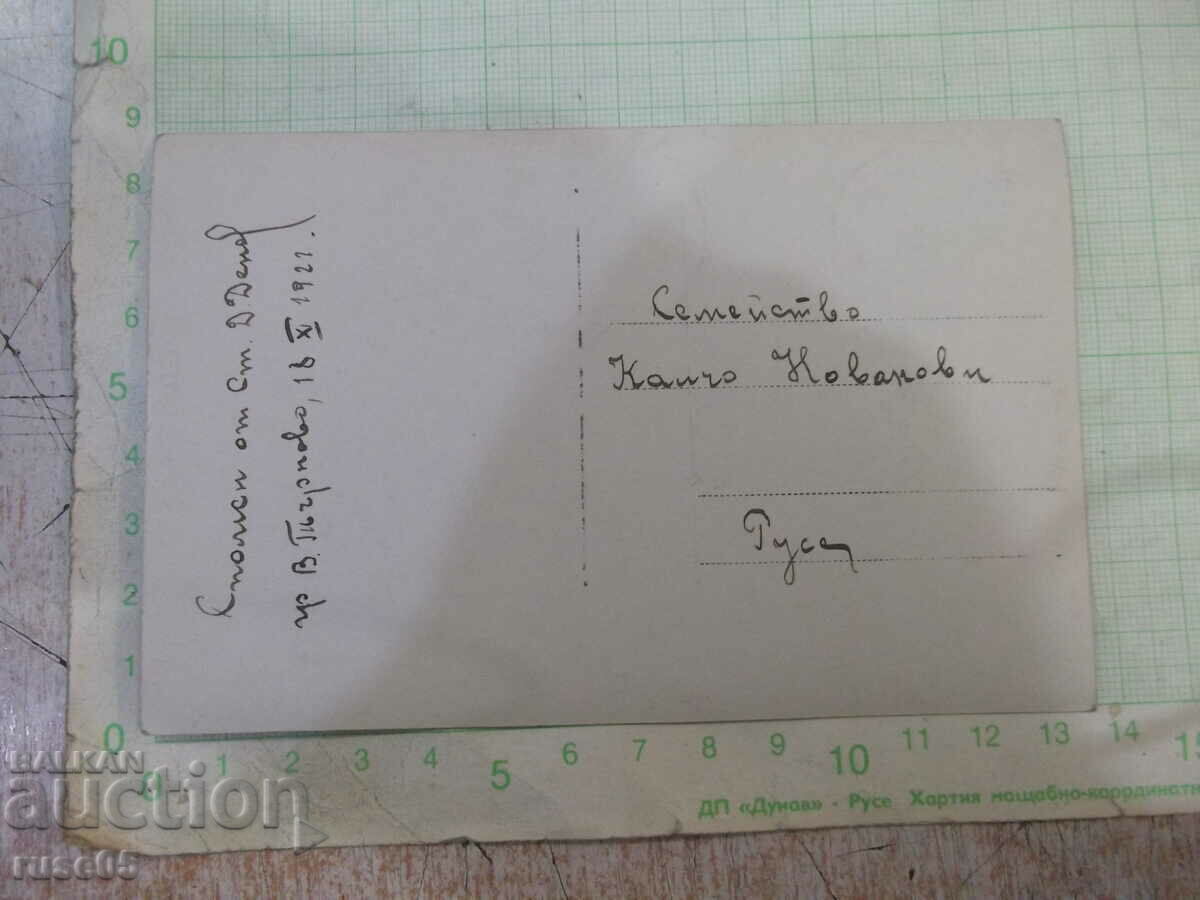 Спомен от Ст. Д Денев
гр В. Търново, 18 XI 1921.
Семейство
Калчо Ковачови
Русе
10
9
8
7
6
5
4
3
2
1
0
0 1 2 5 6 7 8 9 10 11 12 13 14 15
ДП «Дунав» - Русе Хартия мащабно-координатн
BALKAN
auction
ruse05